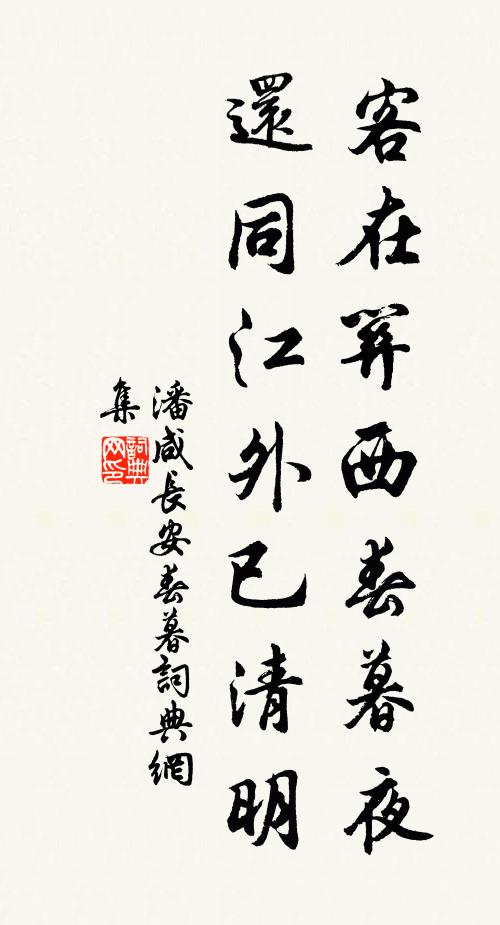 客在關西春暮夜
還同江外已清明
潘咸長安春暮詞典網
集
詞典
网印